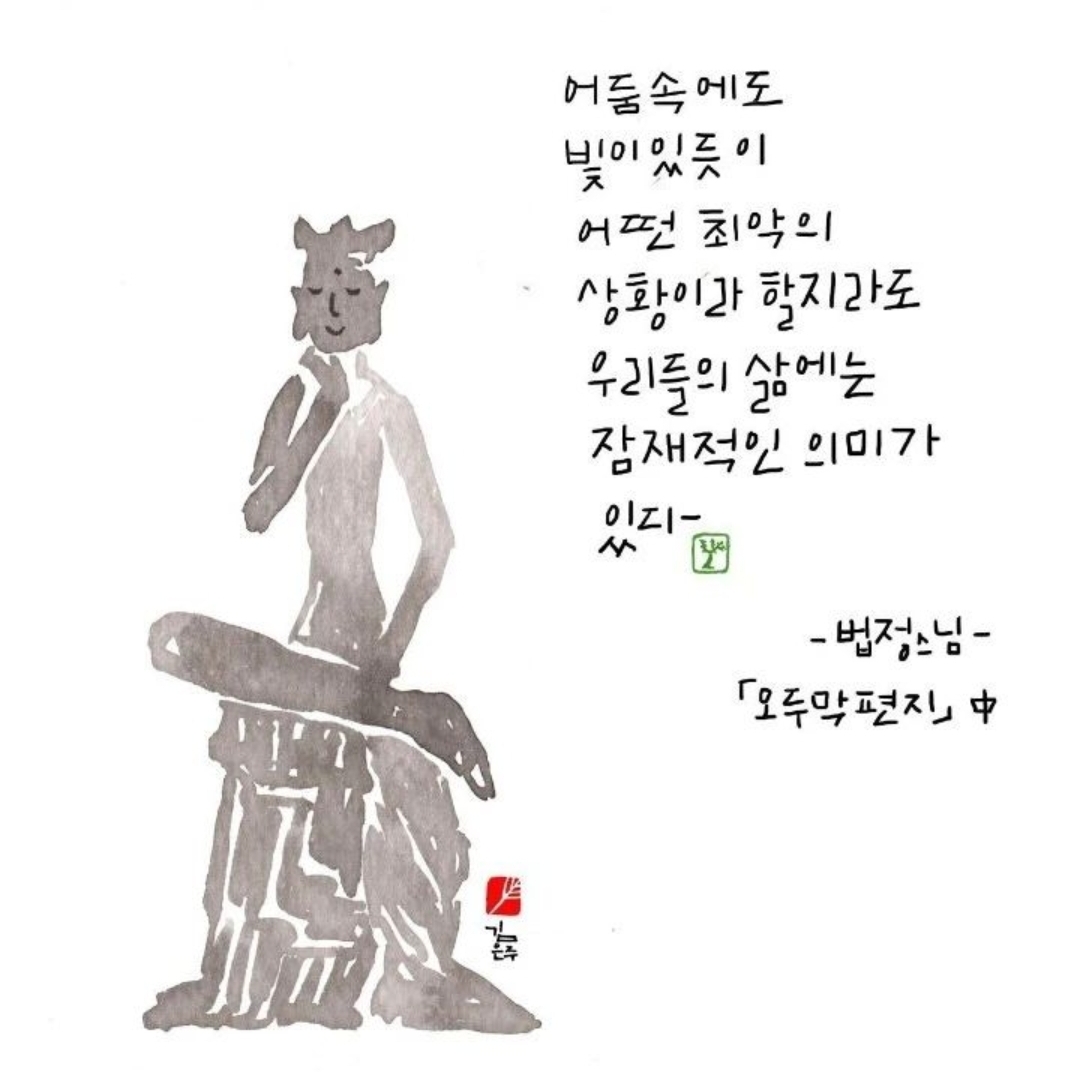 어둠속에도
빛이있듯이
어떤 최악의
상황이라 할지라도
우리들의 삶에는
잠재적인 의미가
있다-
-법정스님-
「오두막편지」中
김은주